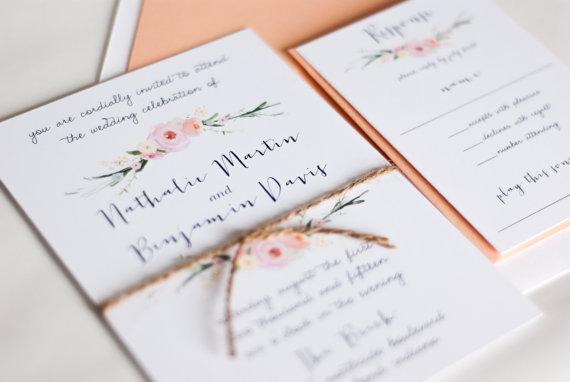 you are cordially invited to attend
the wedding celebration of
Nathalie Martin
and
Benjamin Davis
saturday august the first
two thousand and fifteen
at o clock in the evening
The Birch
Response
please reply by july first
name
accepts with pleasure
declines with regret
number attending
play this song